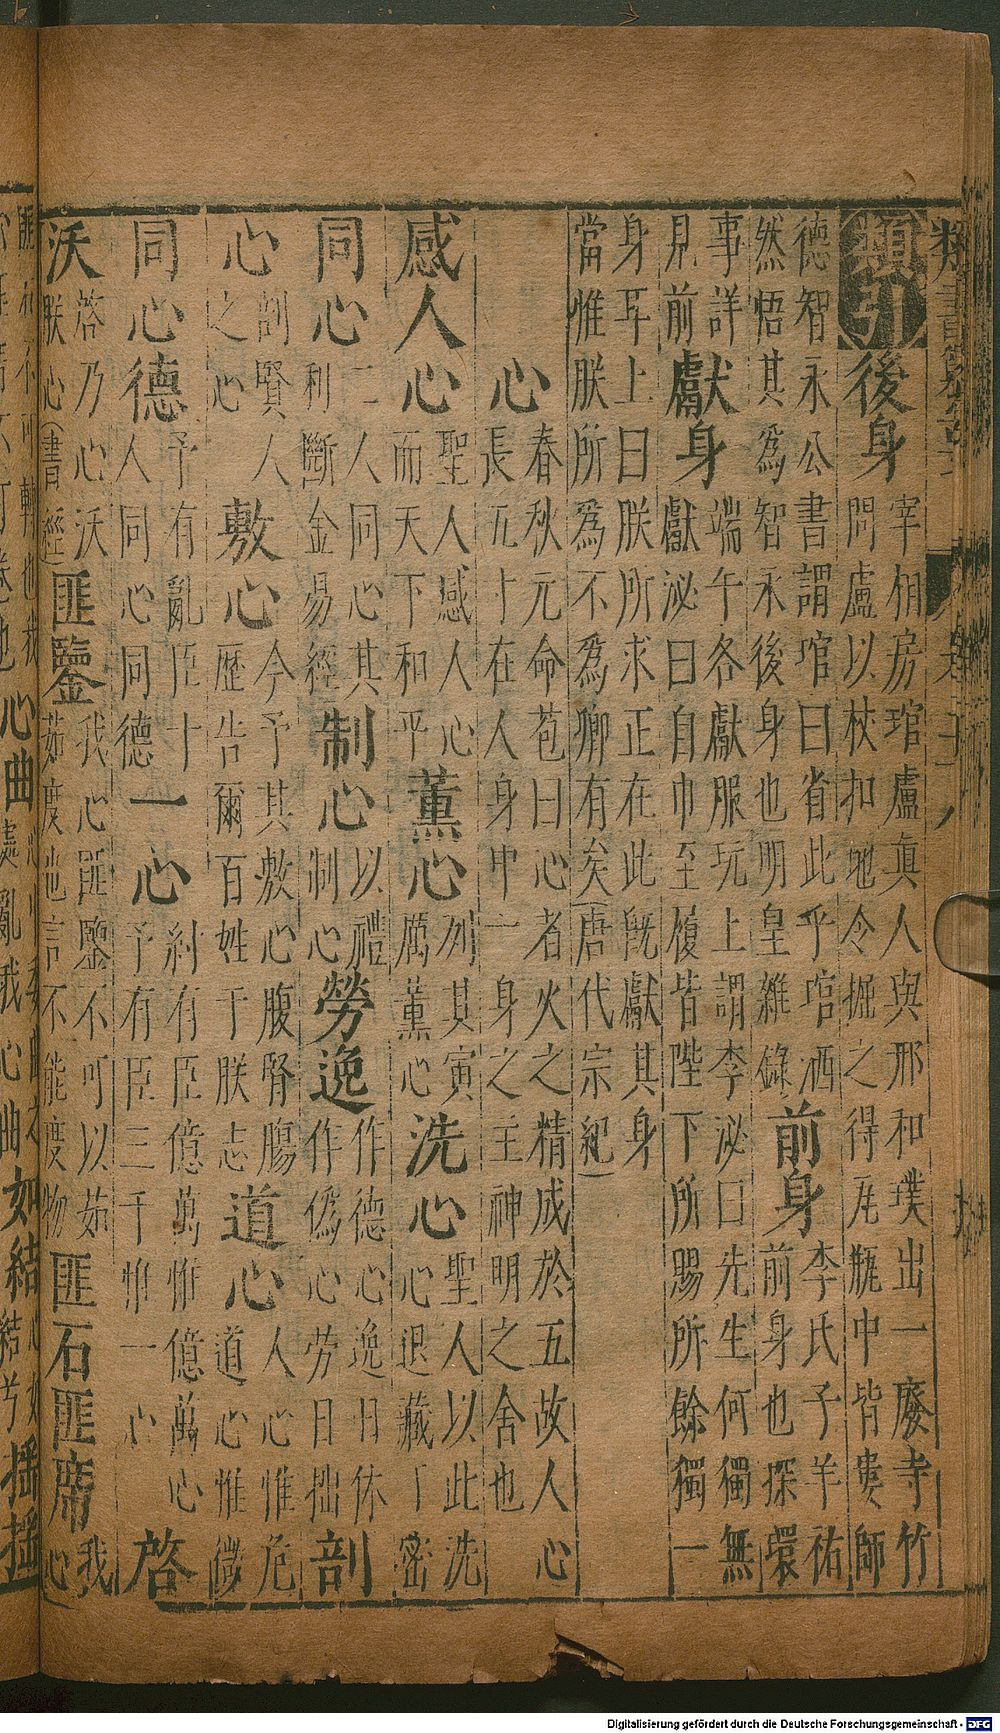 類引
後身 宰相房琯盧眞人與邢和璞出一廢寺竹
問盧以杖扣地令掘之得瓦瓶中皆婁師
德智永公書謂琯曰省此乎琯洒
然悟其爲智永後身也明皇雜錄
前身 李氏子羊祐
前身也探環
事詳
見前
獻身 端午各獻服玩上謂李泌曰先生何獨無
獻泌曰自巾至履皆陛下所賜所餘獨一
身耳上曰朕所求正在此旣獻其身
當惟朕所爲不爲卿有矣(唐代宗紀)
心 春秋元命苞曰心者火之精成於五故人心
長五寸在人身中一身之主神明之舍也
感人心 聖人感人心
而天下和平
薰心 列其夤
厲薰心
洗心 聖人以此洗
心退藏于密
同心 二人同心其
利斷金易經
制心 以禮
制心
勞逸 作德心逸日休
作僞心勞日拙
剖
心 剖賢人
之心
敷心 今予其敷心腹腎腸
歷告爾百姓于朕志
道心 人心惟危
道心惟微
同心德 予有亂臣十
人同心同德
一心 紂有臣億萬惟億萬心
予有臣三千惟一心
啓
沃 啓乃心沃
朕心(書經)
匪鑒 我心匪鑒不可以茹
茹度也言不能度物
匪石匪席 我
心
心曲
亂我心曲
如結
結兮
搖搖
Digitalisierung gefördert durch die Deutsche Forschungsgemeinschaft - DFG